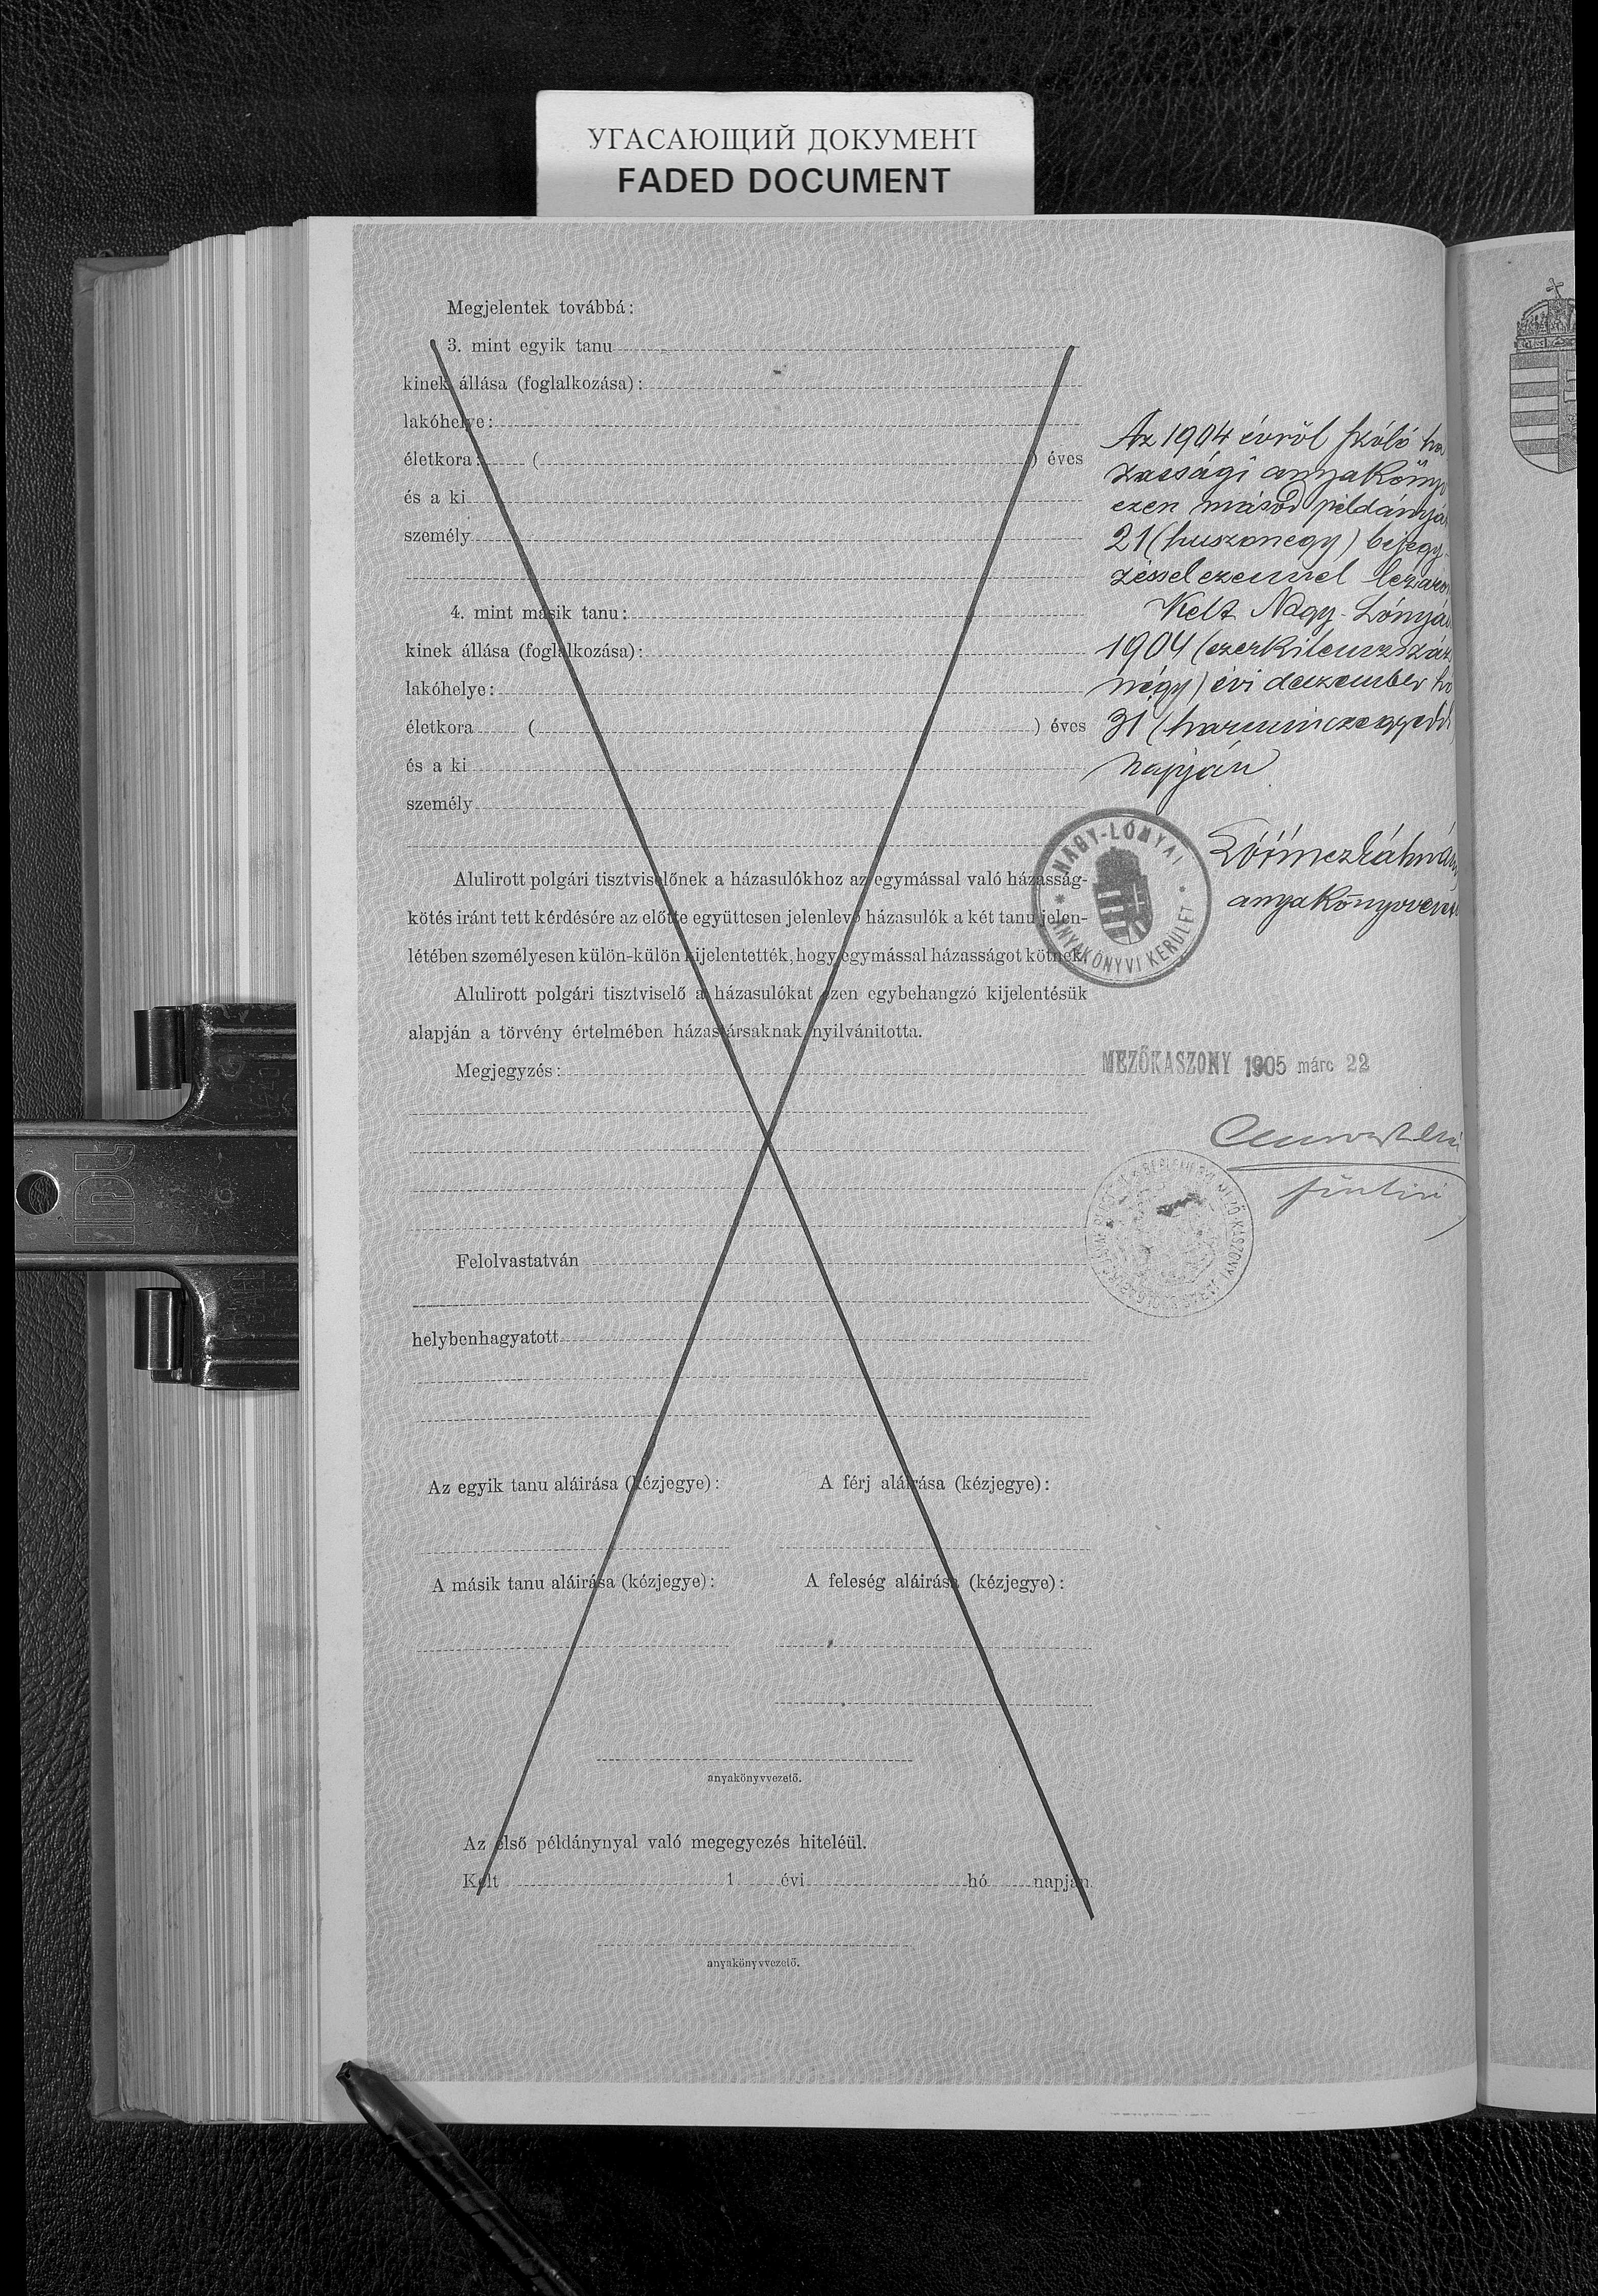 УГАСАЮЩИЙ ДОКУМЕНТ
FADED DOCUMENT
Megjelentek továbbá:
3. mint egyik tanu
kinek állása (foglalkozása):
lakóhelye:
életkora: ( ) éves
és a ki
személy
4. mint másik tanu:
kinek állása (foglalkozása):
lakóhelye:
életkora ( ) éves
és a ki
személy
Alulirott polgári tisztviselőnek a házasulókhoz az egymással való házasság-
kötés iránt tett kérdésére az előtte együttesen jelenlevő házasulók a két tanu jelen-
létében személyesen külön-külön kijelentették, hogy egymással házasságot kötnek.
Alulirott polgári tisztviselő a házasulókat ezen egybehangzó kijelentésük
alapján a törvény értelmében házastársaknak nyilvánitotta.
Megjegyzés:
Felolvastatván
helybenhagyatott
Az egyik tanu aláirása (kézjegye):
A férj aláirása (kézjegye):
A másik tanu aláirása (kézjegye):
A feleség aláirása (kézjegye):
anyakönyvvezető.
Az első példánynyal való megegyezés hiteléül.
Kelt 1 évi hó napján
anyakönyvvezető.
Az 1904 évről szóló há
zassági anyaköny
ezen másod példányá
21 (huszonegy) bejegy-
zéssel ezennel lezáro
Kelt Nagy-Lónyá
1904 (ezerkilenczszáz
négy) évi deczember hó
31 (harminczegyedi
napján
anyakönyvvezet
NAGY-LÓNYAI
ANYAKÖNYVI KERÜLET
MEZŐKASZONY 1905 márc 22